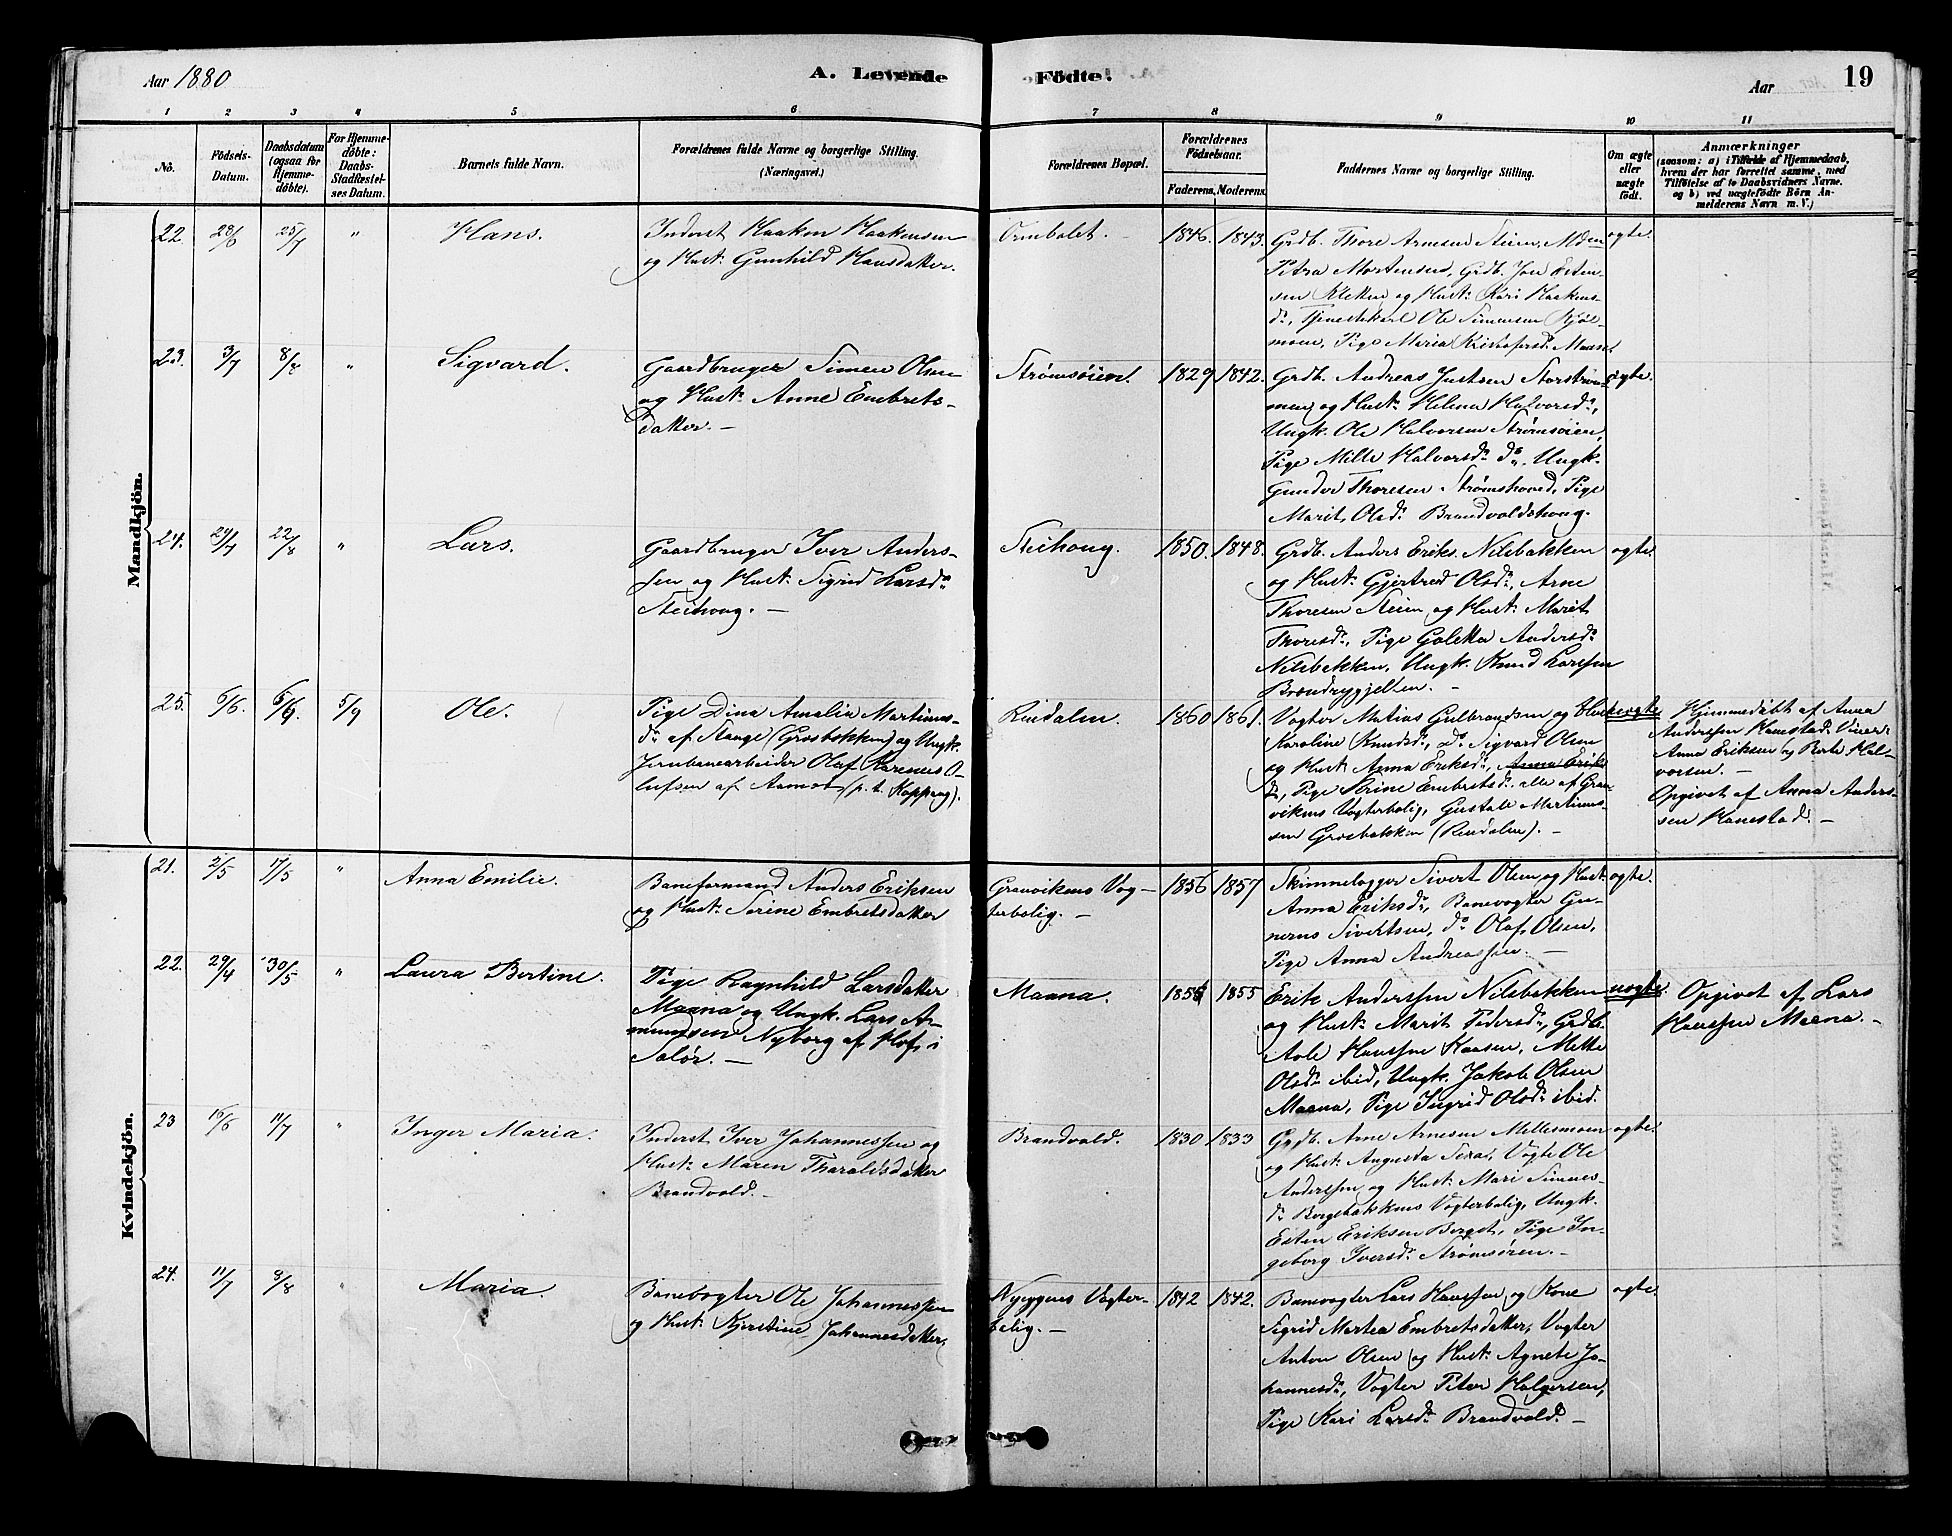 Aar 1880
A. Levende Födte.
Aar
19
1 2 3 4 5 6 7 8 9 10 11
No.
Födsels-
Datum.
Daabsdatum
(ogsaa for
Hjemme-
döbte).
For Hjemme-
döbte:
Daabs-
Stadfæstel-
ses Datum.
Barnets fulde Navn.
Forældrenes fulde Navne og borgerlige Stilling.
(Næringsvei.)
Forældrenes Bopæl.
Forældrenes
Födselsaar.
Faderens. Moderens.
Faddernes Navne og borgerlige Stilling.
Om ægte
eller
uægte
födt.
Anmærkninger
(saasom: a) i Tilfælde af Hjemmedaab,
hvem der har forrettet samme, med
Tilföielse af to Daabsvidners Navne,
og b) ved uægtefödte Börn An-
melderens Navn m. V.)
Mandkjön.
22.
25/7
"
Hans.
Inderst Haaken Haakensen
og Hust: Gunhild Hansdatter.
1846. 1843.
Grdb. Thore Arnesen Steien,
Petra Mortensen, Grdb. Jon Esten-
sen Kletten og Hust: Kari Haakens-
d., Tjenestekarl Ole Simensen
moen, Pige Maria
ægte.
23.
3/7
8/8
"
Sigvard.
Gaardbruger Simen Olsen
og Hust: Anne Embrets-
datter. –
Strømsøien.
1829 1842.
Grdb. Andreas Justsen Storstrøm-
men og Hust: Helena Halvorsd.,
Ungk. Ole Halvorsen Strømsøien,
Pige Mille Halvorsd. do., Ungk.
Gunder Thoresen Strømshoved, Pige
Marit Olsd. Brandvoldshaug.
ægte.
24.
29/7
22/8
"
Lars.
Gaardbruger Iver Anders-
sen og Hust: Sigrid Larsd.
Steihaug. –
Steihaug.
1850. 1848.
Grdb. Anders Eriks. Nilsbakken
og Hust: Gjertrud Olsd., Arne
Thoresen Steien og Hust: Marit
Thoresd., Pige Goletta Andersd.
Nilsbakken, Ungk. Knud Larssen
ægte.
25.
6/6.
5/9
Ole.
Pige Dina Amalia Martinus-
d. af Stange (Grosbakken) og Ungk.
Jernbanearbeider Olaf Karenus O-
lufsen af Aamot (p. t. Koppang).
Rendalen.
1860 1861.
Vogter Matias Gulbrandsen og Hust:
Karoline Knudsd., Do. Sigvard Olsen
og Hust: Anna Eriksd., Anna Eriks
d., Pige Strine Embretsd. alle af Gran-
vikens Vogterbolig, Gustav Martinus-
sen Grosbakken (Rendalen). –
uægte
Hjemmedøbt af Anna
Anderssen Hanestad. Vidner:
Anna Eriksen og Berte Hal-
vorsen. –
Opgivet af Anna Anders-
sen Hanestad. –
Kvindekjön.
21.
2/5
17/5
"
Anna Emilie.
Baneformand Anders Eriksen
og Hust: Serine Embretsdatter
Granvikens Vog-
terbolig. –
1856 1857
Skinnelægger Sivert Olsen og Hust:
Anna Eriksd., Banevogter Gu-
nerus Sivertsen, do. Olaf Olsen,
Pige Anna Andreassen. –
ægte.
22.
29/4
30/5
"
Laura Bertine.
Pige Ragnhild Larsdatter
Maana og Ungk. Lars A-
mundsen Nyborg af Hof i
Solør. –
Maana.
1855
Erik Anderssen Nilsbakken
og Hust: Marit Pedersd., Grdb.
Aole Hanssen Kaasen, Mette
Olsd. ibid, Ungk. Jakob Olsen
Maana, Pige Ingrid Olsd. ibid.
uægte
Opgivet af Lars
Hanssen Maana. –
23
16/6
11/7
"
Inger Maria.
Inderst Iver Johannessen og
Hust: Maren Tharaldsdatter
Brandvold. –
Brandvold.
1830 1833
Grdb. Arne Arnesen Mellesmoen
og Hust: Augusta Sexa, Vogter Ole
Anderssen og Hust: Mari Simens-
d. Borgebakkens Vogterbolig, Ungk.
Esten Eriksen Berget, Pige In-
geborg Iversd. Strømsøren. –
ægte.
24.
11/7
8/8
"
Maria
Banevogter Ole Johannessen
og Hust: Kjerstine Johannesdatter.
Vogter-
bolig. –
1842 1842.
Banevogter Lars Hanssen og Kone
Sigrid Martea Embretsdatter, Vogter
Anton Olsen og Hust: Agnete Jo-
hannesd., Vogter Peter Holgersen,
Pige Kari Larsd. Brandvold. –
ægte.